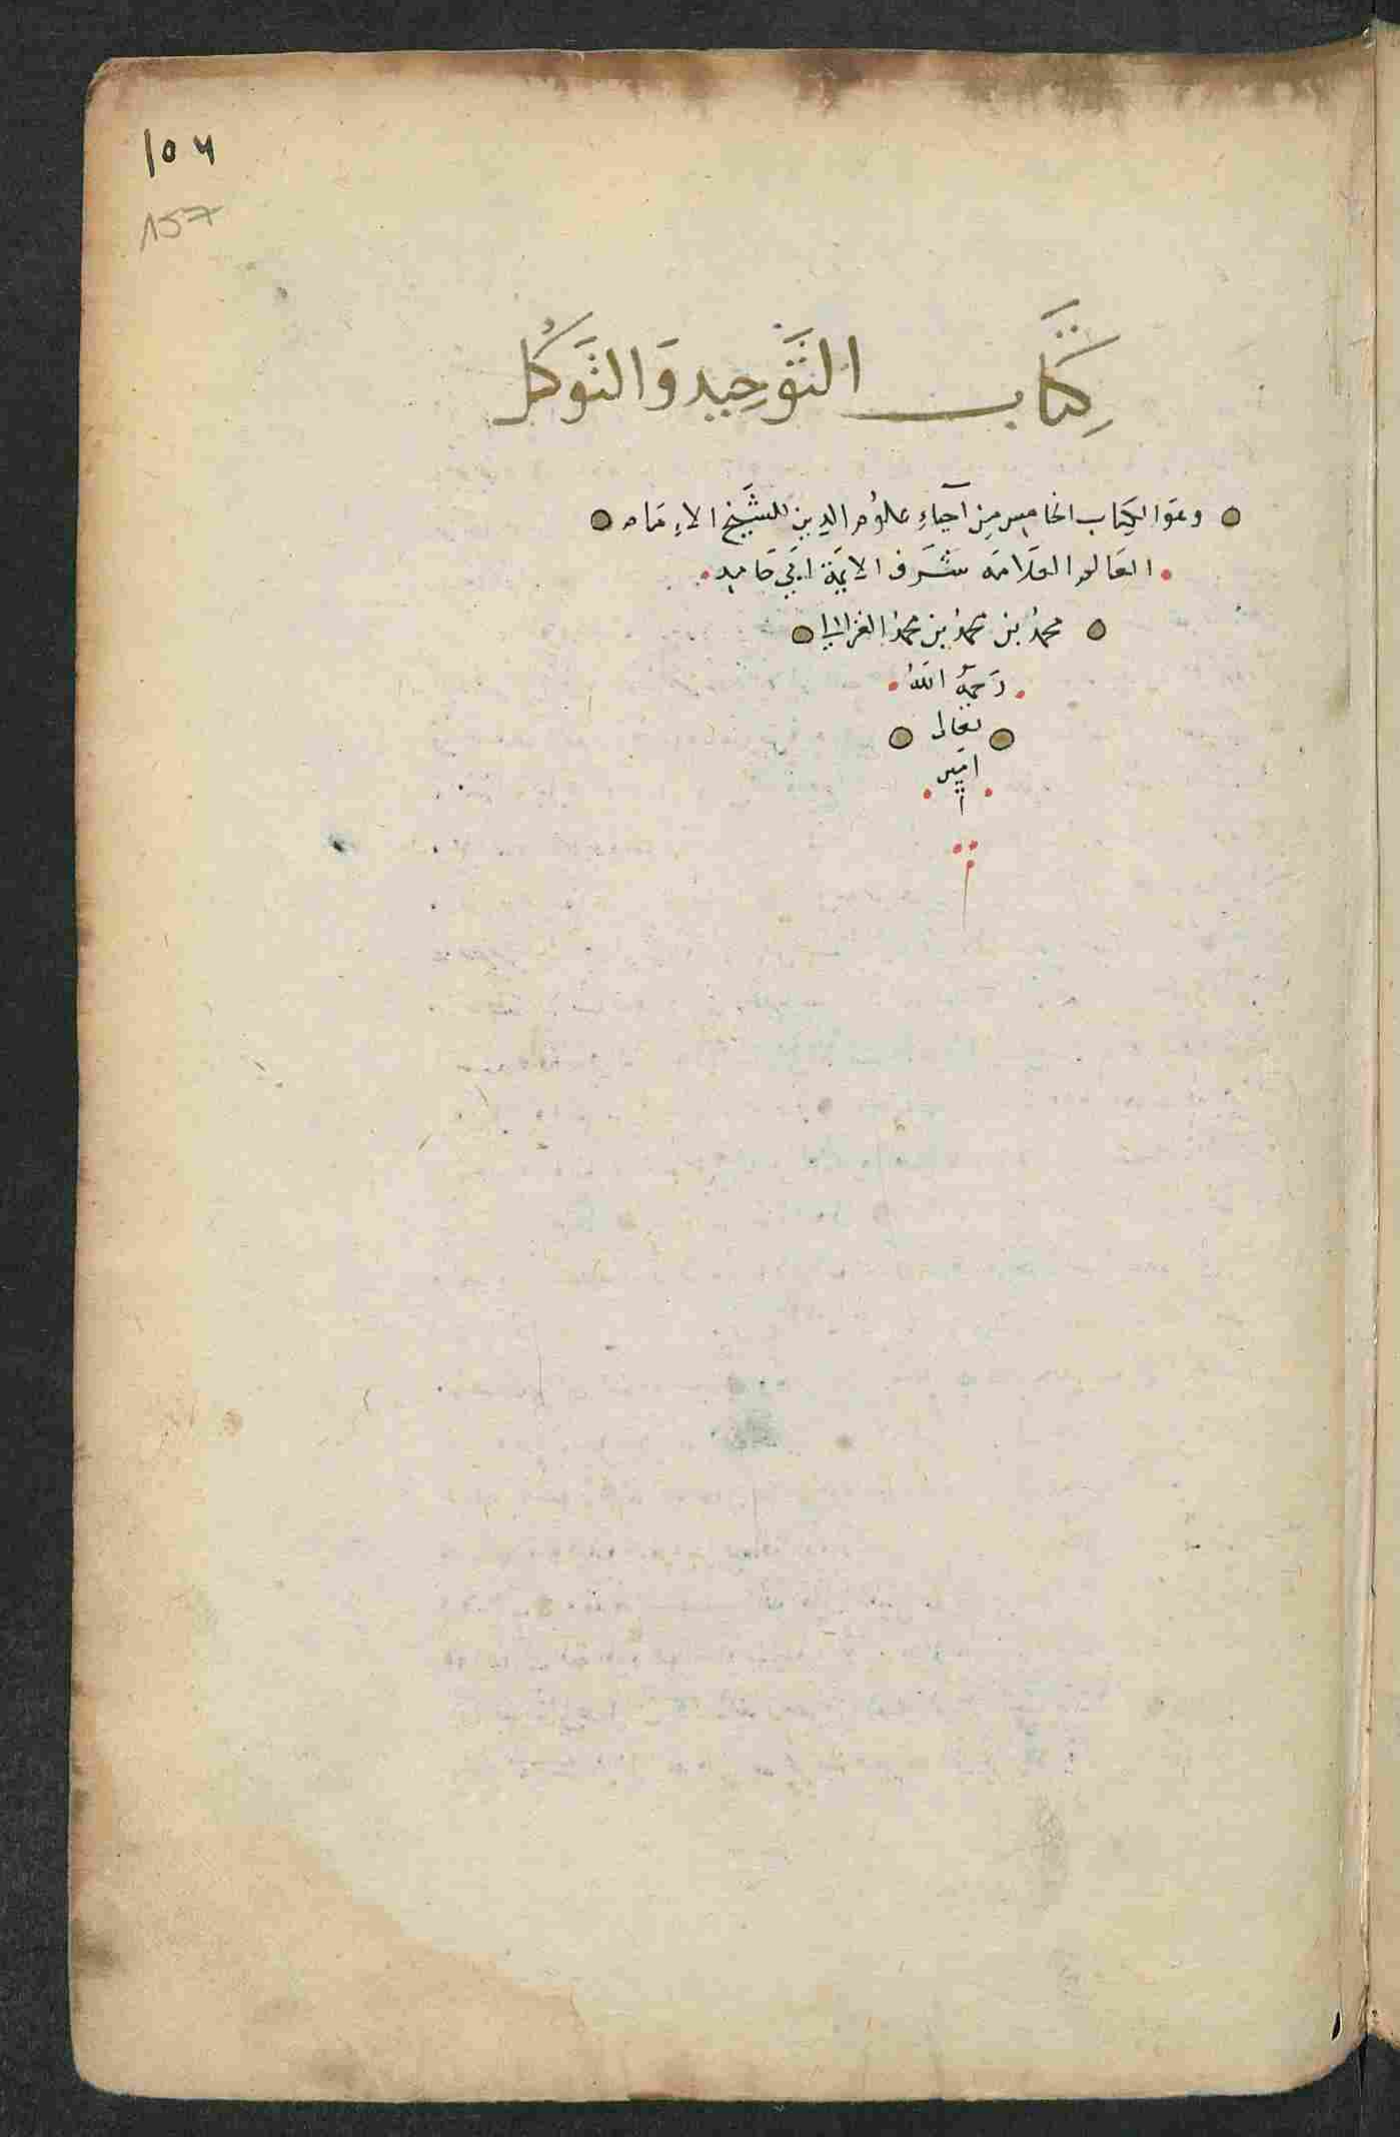 ١٥٧
157
كِتَاب التَّوحِيد وَالتَّوَكُل
وهو الكِتاب الخامس مِن آحياءِ علوُم الدين للشَيخ الاِمَام
العَالم العَلامَه شَرَف الايمَة ابَي حَامِد
محمدُ بن محمدُ بن محمدُ الغزالي
رَحمهُ اللهُ
تعالى
امَين